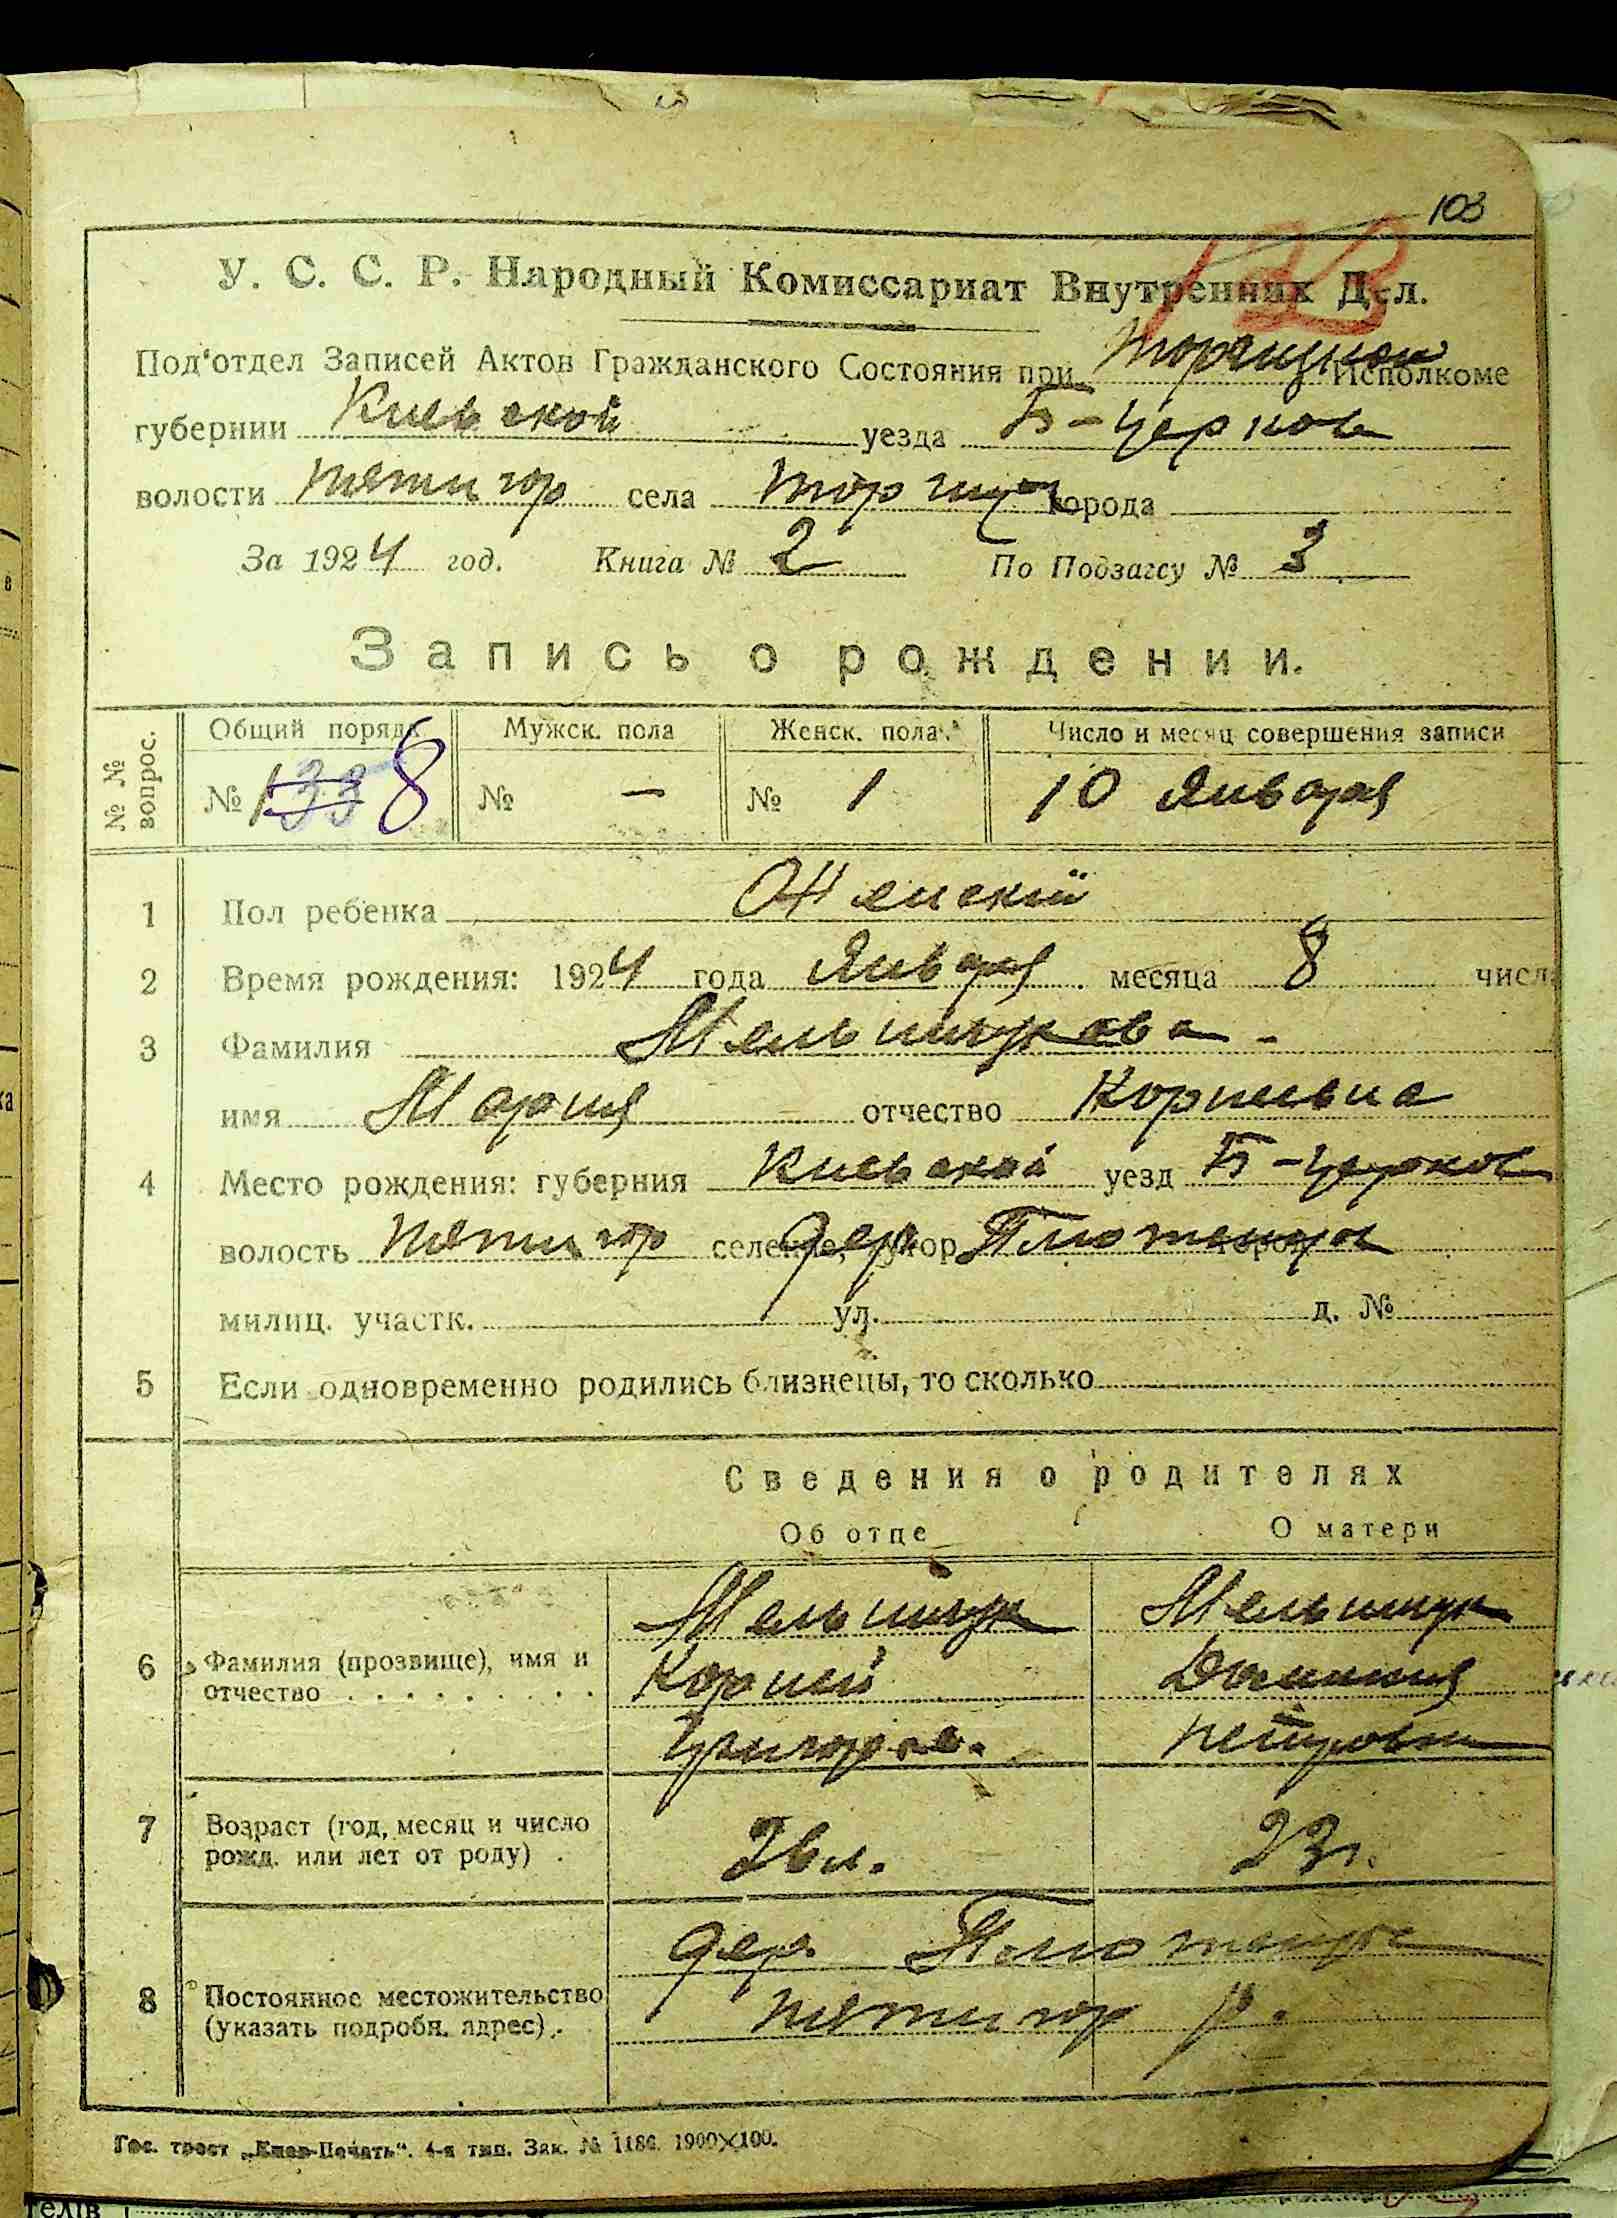 103
У. С. С. Р. Народный Комиссариат Внутренних Дел.
Под'отдел Записей Актов Гражданского Состояния при Торчицком Исполкоме
губернии Киевской уезда Б-Церков
волости Пятигор села Торчица города
За 1924 год. Книга № 2 По Подзагсу № 3
Запись о рождении.
№ № вопрос. Общий поряд. Мужск. пола Женск. пола Число и месяц совершения записи
№ 133 8 № — № 1 10 Января
1 Пол ребенка Женский
2 Время рождения: 1924 года Января месяца 8 числа
3 Фамилия Мельничукова
имя Мария отчество Корниевна
4 Место рождения: губерния Киевской уезд Б-Церков
волость Пятигор селение, хутор дер Плютенци город
милиц. участк. ул. д. №
5 Если одновременно родились близнецы, то сколько
Сведения о родителях
Об отце О матери
Мельничук Мельничук
6 Фамилия (прозвище), имя и Корний Домникия
отчество . . . . . . . . .
Григоров. Петровна
7 Возраст (год, месяц и число
рожд. или лет от роду) . 26 л. 23 г.
дер. Плютенци
8 Постоянное местожительство Пятигор р.
(указать подробн. адрес).
Гос. трест „Киев-Печать“. 4-я тип. Зак. № 1186. 1900×100.